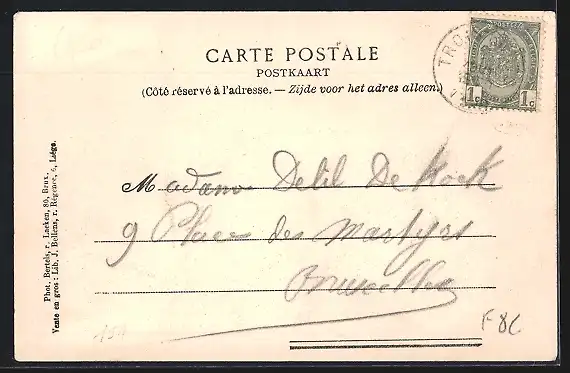 CARTE POSTALE
POSTKAART
(Côté réservé à l'adresse. — Zijde voor het adres alleen.)
1c 1c
Madame Delil De Kock
9 Place des Martyrs
Bruxelles
Phot. Bertels, r. Laeken, 80, Brux.
Vente en gros : Lib. J. Bellens, r. Régence, 6, Liége.
F 86